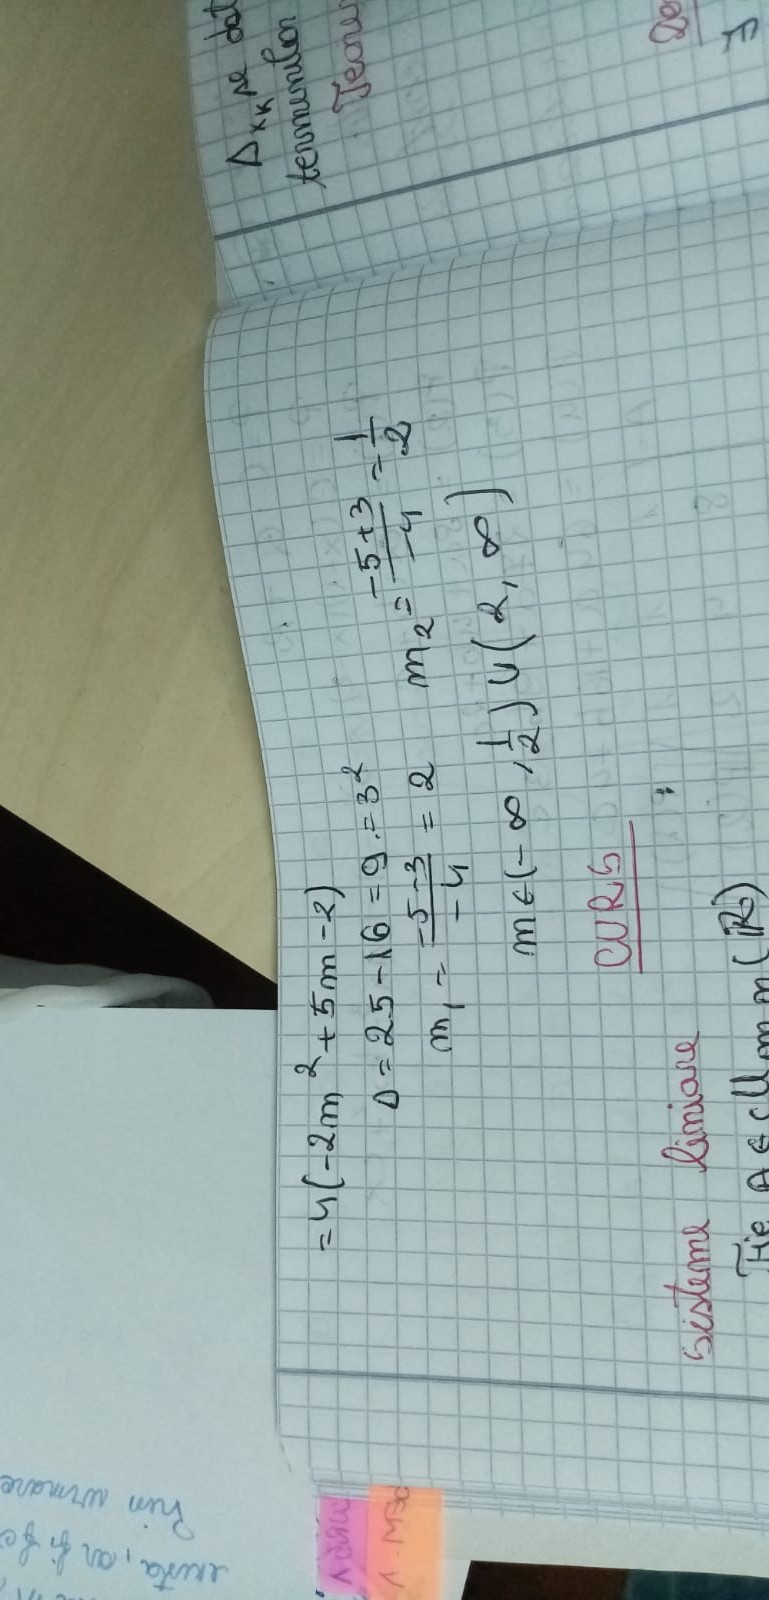 exista, ar fi
Prin urmare
=4(-2m²+5m-2)
Δ=25-16=9.=3²
m₁ = (-5-3)/(-4) = 2 m₂ = (-5+3)/(-4) = 1/2
m∈(-∞, 1/2) ∪ (2, ∞)
CURS
Sisteme liniare
Fie A ∈ M m n (R)
Δ_{xk} se dat
termenilor